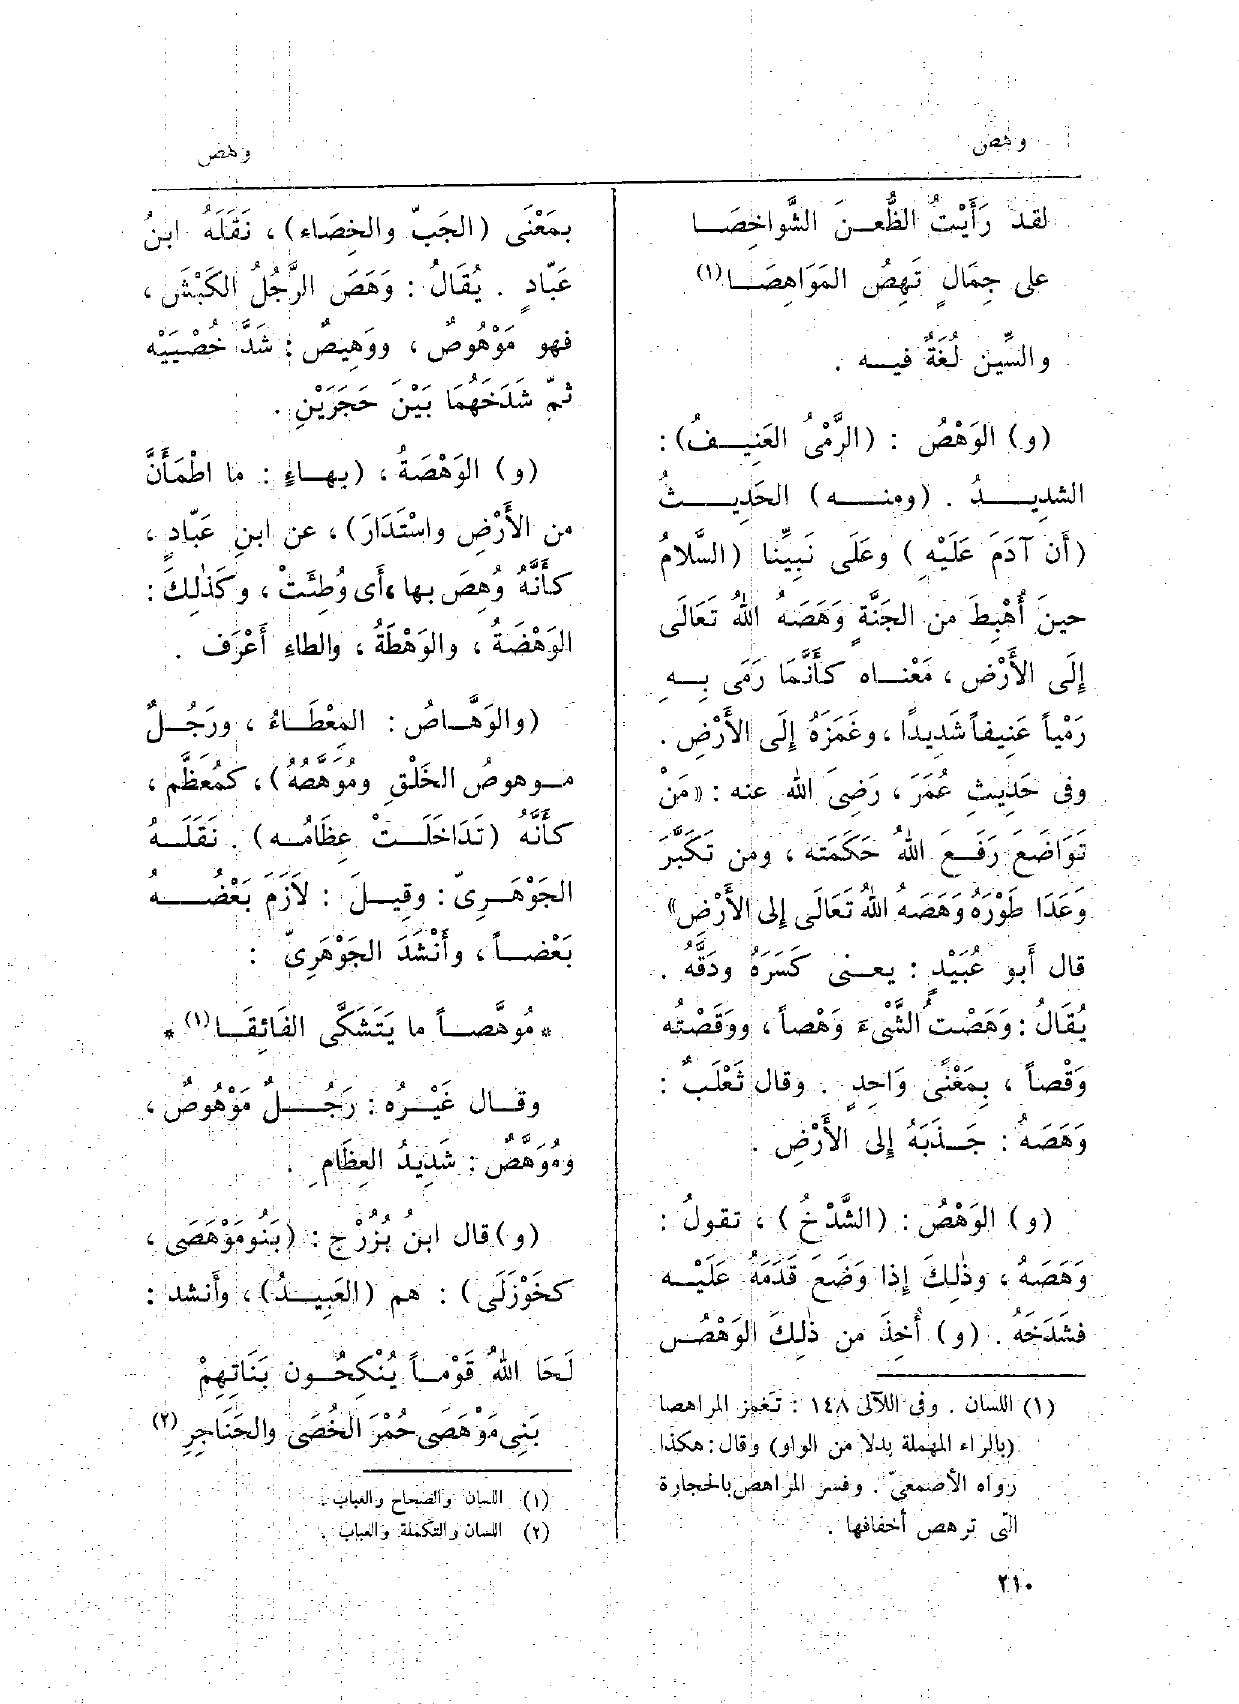 وهص
وهص
لقد رَأَيْتُ الظُّعنَ الشَّواخِصَا
على جِمَالٍ تَهِصُ المَوَاهِصَا(١)
والسِّين لُغَةٌ فيه .
(و) الوَهْصُ : (الرَّمْىُ العَنِيفُ):
الشديدُ . (ومنه) الحَدِيثُ
(أَن آدَمَ عَلَيْهِ) وعَلَى نَبِيِّنا (السَّلامُ
حينَ أُهْبِطَ من الجَنَّةِ وَهَصَهُ اللهُ تَعَالَى
إِلَى الأَرْضِ ، مَعْناه كأَنَّمَا رَمَى بِهِ
رَمْياً عَنِيفاً شَدِيدًا ، وغَمَزَهُ إِلَى الأَرْضِ .
وفى حَدِيثِ عُمَرَ ، رَضِىَ الله عنه : «مَنْ
تَوَاضَعَ رَفَع اللهُ حَكَمَته ، ومن تَكَبَّرَ
وَعَدَا طَوْرَهُ وَهَصَهُ اللهُ تَعَالَى إِلى الأَرْضِ»
قال أَبو عُبَيْدٍ : يعنى كَسَرَهُ ودَقَّهُ .
يُقَالُ : وَهَصْت الشَّىْءَ وَهْصاً ، ووَقَصْتُه
وَقْصاً ، بِمَعْنًى وَاحِدٍ . وقال ثَعْلَبٌ :
وَهَصَهُ : جَذَبَهُ إِلى الأَرْضِ .
(و) الوَهْصُ : (الشَّدْخُ) ، تقولُ :
وَهَصَهُ ، وذٰلِكَ إِذا وَضَعَ قَدَمَهُ عَلَيْه
فشَدَخَهُ . (و) أُخِذَ من ذٰلِكَ الوَهْصُ
(١) اللسان . وفى اللآلى ١٤٨ : تَغمِز المراهصا
(بالراء المهملة بدلا من الواو) وقال : هكذا
رواه الأصمعىّ . وفسر المراهص بالحجارة
التى ترهص أخفافها .
بمَعْنَى (الجَبّ والخِصَاء) ، نَقَلَهُ ابنُ
عَبّادٍ . يُقَالُ : وَهَصَ الرَّجُلُ الكَبْشَ ،
فهو مَوْهُوصٌ ، ووَهِيصٌ : شَدَّ خُصْيَيْه
ثمّ شَدَخَهُمَا بَيْنَ حَجَرَيْنِ .
(و) الوَهْصَةُ ، (بهاءٍ : ما اطْمَأَنَّ
من الأَرْضِ واسْتَدَارَ) ، عن ابنِ عَبّادٍ ،
كأَنَّهُ وُهِصَ بها ، أَى وُطِئَتْ ، وكَذٰلِكَ :
الوَهْضَةُ ، والوَهْطَةُ ، والطاءِ أَعْرَف .
(والوَهَّاصُ : المِعْطَاءُ ، ورَجُلٌ
موهوصُ الخَلْقِ ومُوَهَّصُهُ) ، كمُعَظَّمٍ ،
كأَنَّهُ (تَدَاخَلَتْ عِظَامُه) . نَقَلَهُ
الجَوْهَرِىّ : وقِيلَ : لاَزَمَ بَعْضُهُ
بَعْضاً ، وأَنْشَدَ الجَوْهَرِىّ :
* مُوَهَّصاً ما يَتَشَكَّى الفَائِقَا(١) *
وقال غَيْرُه : رَجُلٌ مَوْهُوصٌ ،
ومُوَهَّصٌ : شَدِيدُ العِظَامِ .
(و) قال ابنُ بُزُرْج : (بَنُو مَوْهَصَى ،
كخَوْزَلَى) : هم (العَبِيدُ) ، وأَنشد :
لَحَا اللهُ قَوْماً يُنْكِحُون بَنَاتِهِمْ
بَنِى مَوْهَصَى حُمْرَ الخُصَى والحَنَاجِرِ (٢)
(١) اللسان والصحاح والعباب .
(٢) اللسان والتكملة والعباب .
٢١٠